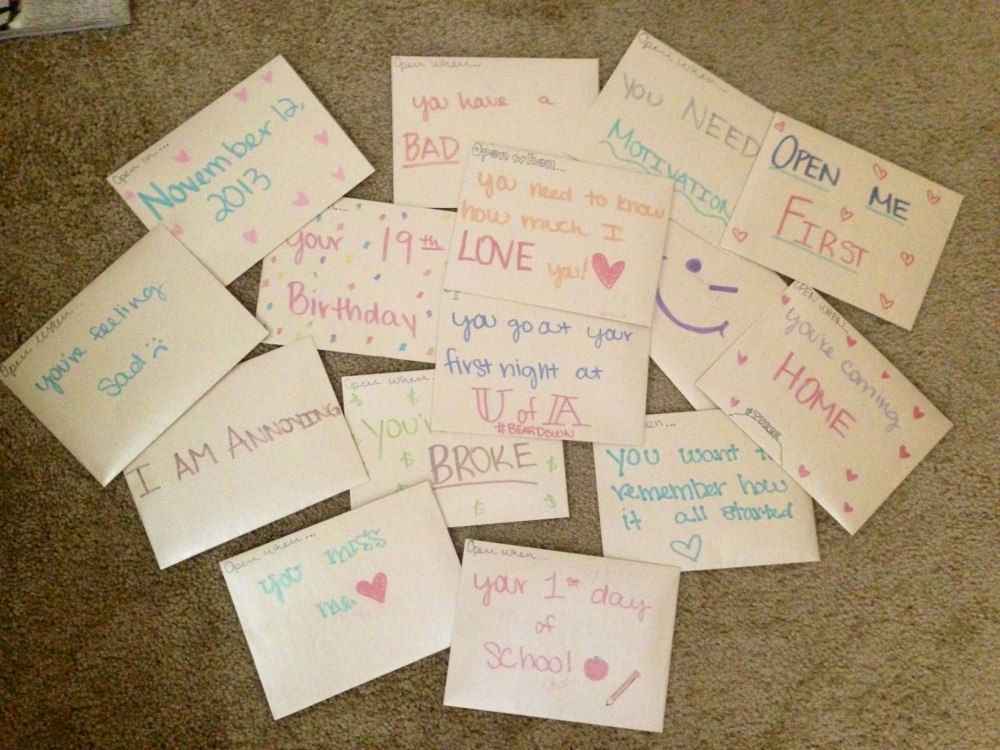 Open on...
November 12,
2013
Open when...
you have a
BAD
Open when...
You NEED
MOTIVATION
OPEN
ME
FIRST
Open when...
you need to know
how much I
LOVE you!
your 19th
Birthday
Open when
you're feeling
sad :(
I AM ANNOYING
Open when
$ $
You'r
$ $
BROKE
$ $
you go at your
first night at
U of A
#BEARDOWN
OPEN WHEN...
you're coming
HOME
en...
you want t
remember how
it all started
Open when...
you miss
me
Open when...
your 1st day
of
School